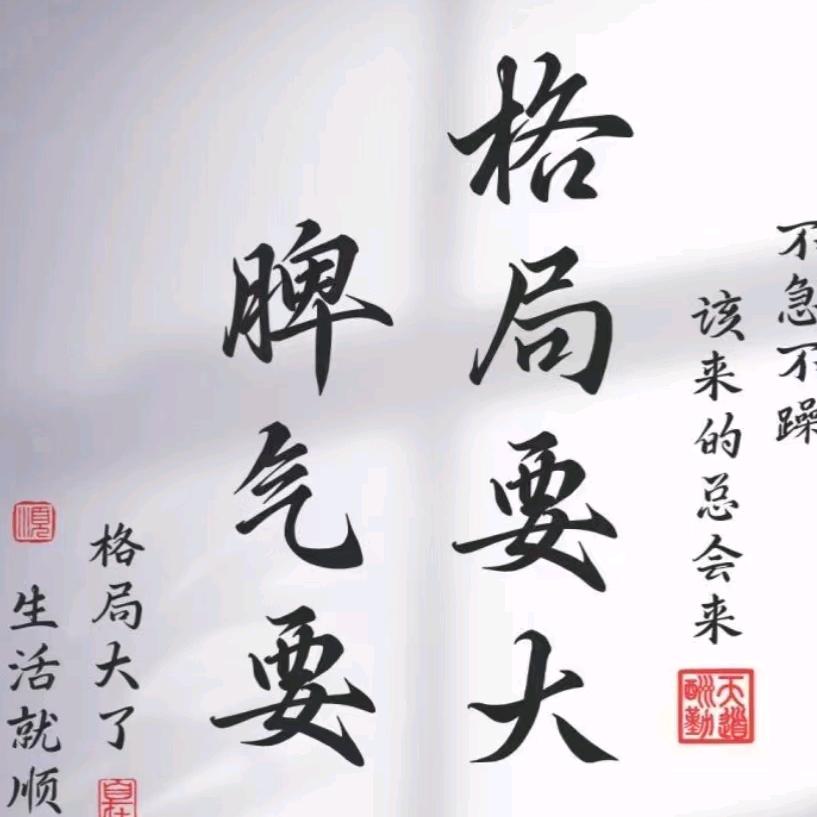 不急不躁
该来的总会来
天道酬勤
格局要大
脾气要
格局大了
生活就顺
順